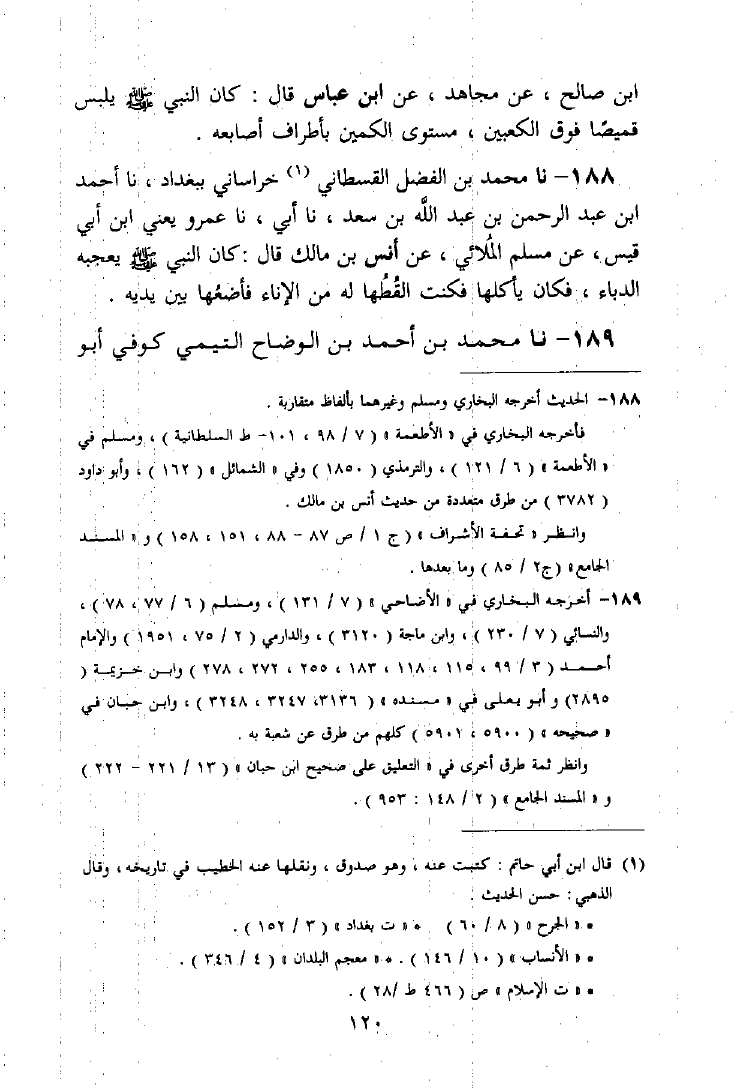 ابن صالح ، عن مجاهد ، عن ابن عباس قال : كان النبي ﷺ يلبس
قميصًا فوق الكعبين ، مستوى الكمين بأطراف أصابعه .
١٨٨- نا محمد بن الفضل القسطاني (١) خراساني ببغداد ، نا أحمد
ابن عبد الرحمن بن عبد اللَّه بن سعد ، نا أبي ، نا عمرو يعني ابن أبي
قيس ، عن مسلم المُلائي ، عن أنس بن مالك قال : كان النبي ﷺ يعجبه
الدباء ، فكان يأكلها فكنت القُطُها له من الإناء فأضعُها بين يديه .
١٨٩- نا محمد بن أحمد بن الوضاح التيمي كوفي أبو
١٨٨- الحديث أخرجه البخاري ومسلم وغيرهما بألفاظ متقاربة .
فأخرجه البخاري في « الأطعمة » ( ٧ / ٩٨ ، ١٠١- ط السلطانية ) ، ومسلم في
« الأطعمة » ( ٦ / ١٢١ ) ، والترمذي ( ١٨٥٠ ) وفي « الشمائل » ( ١٦٢ ) ، وأبو داود
( ٣٧٨٢ ) من طرق متعددة من حديث أنس بن مالك .
وانظر « تحفة الأشراف » ( ج ١ / ص ٨٧ - ٨٨ ، ١٥١ ، ١٥٨ ) و « المسند
الجامع » ( ج٢ / ٨٥ ) وما بعدها .
١٨٩- أخرجه البخاري في « الأضاحي » ( ٧ / ١٣١ ) ، ومسلم ( ٦ / ٧٧ ، ٧٨ ) ،
والنسائي ( ٧ / ٢٣٠ ) ، وابن ماجة ( ٣١٢٠ ) ، والدارمي ( ٢ / ٧٥ ، ١٩٥١ ) والإمام
أحمد ( ٣ / ٩٩ ، ١١٥ ، ١١٨ ، ١٨٣ ، ٢٥٥ ، ٢٧٢ ، ٢٧٨ ) وابن خزيمة (
٢٨٩٥) و أبو يعلى في « مسنده » ( ٣١٣٦، ٣٢٤٧ ، ٣٢٤٨ ) ، وابن حبان في
« صحيحه » ( ٥٩٠٠ ، ٥٩٠١ ) كلهم من طرق عن شعبة به .
وانظر ثمة طرق أخرى في « التعليق على صحيح ابن حبان » ( ١٣ / ٢٢١ - ٢٢٢ )
و « المسند الجامع » ( ٢ / ١٤٨ : ٩٥٣ ) .
(١) قال ابن أبي حاتم : كتبت عنه ، وهو صدوق ، ونقلها عنه الخطيب في تاريخه ، وقال
الذهبي : حسن الحديث .
* « الجرح » ( ٨ / ٦٠ ) * « ت بغداد » ( ٣ / ١٥٢ ) .
* « الأنساب » ( ١٠ / ١٤٦ ) . * « معجم البلدان » ( ٤ / ٣٤٦ ) .
* « ت الإسلام » ص ( ٤٦٦ ط /٢٨ ) .
١٢٠